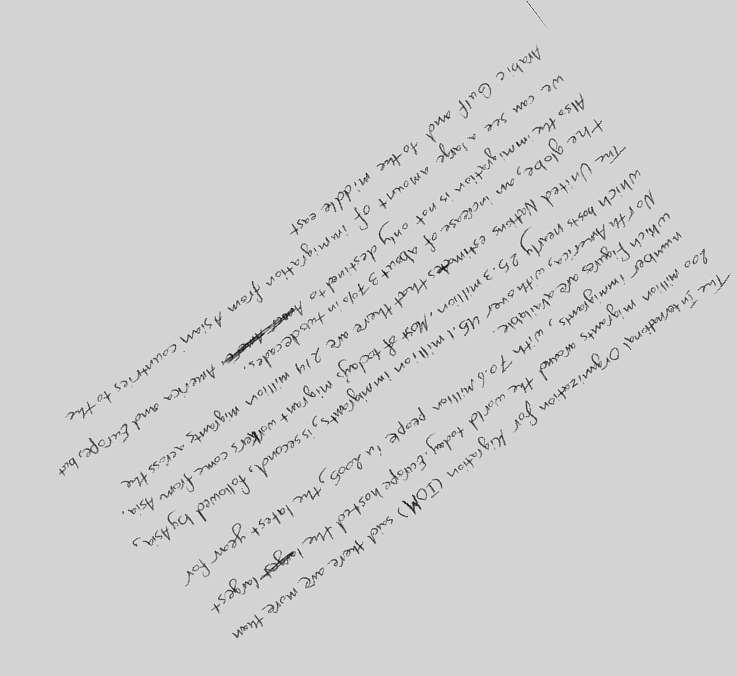 The International Organization for Migration (IOM) said there are more than
200 million migrants around the world today. Europe hosted the largest
number immigrants, with 70.6 million people in 2005, the latest year for
which figures are available.
North America, with over 45.1 million immigrants, is second, followed by Asia,
which hosts nearly 25.3 million. Most of today's migrant workers come from Asia.
The United Nations estimates that there are 214 million migrants across the
the globe, an increase of about 37% in two decades.
Also the immigration is not only destined to America and Europe, but
we can see a large amount of immigration from Asian countries to the
Arabic Gulf and to the middle east